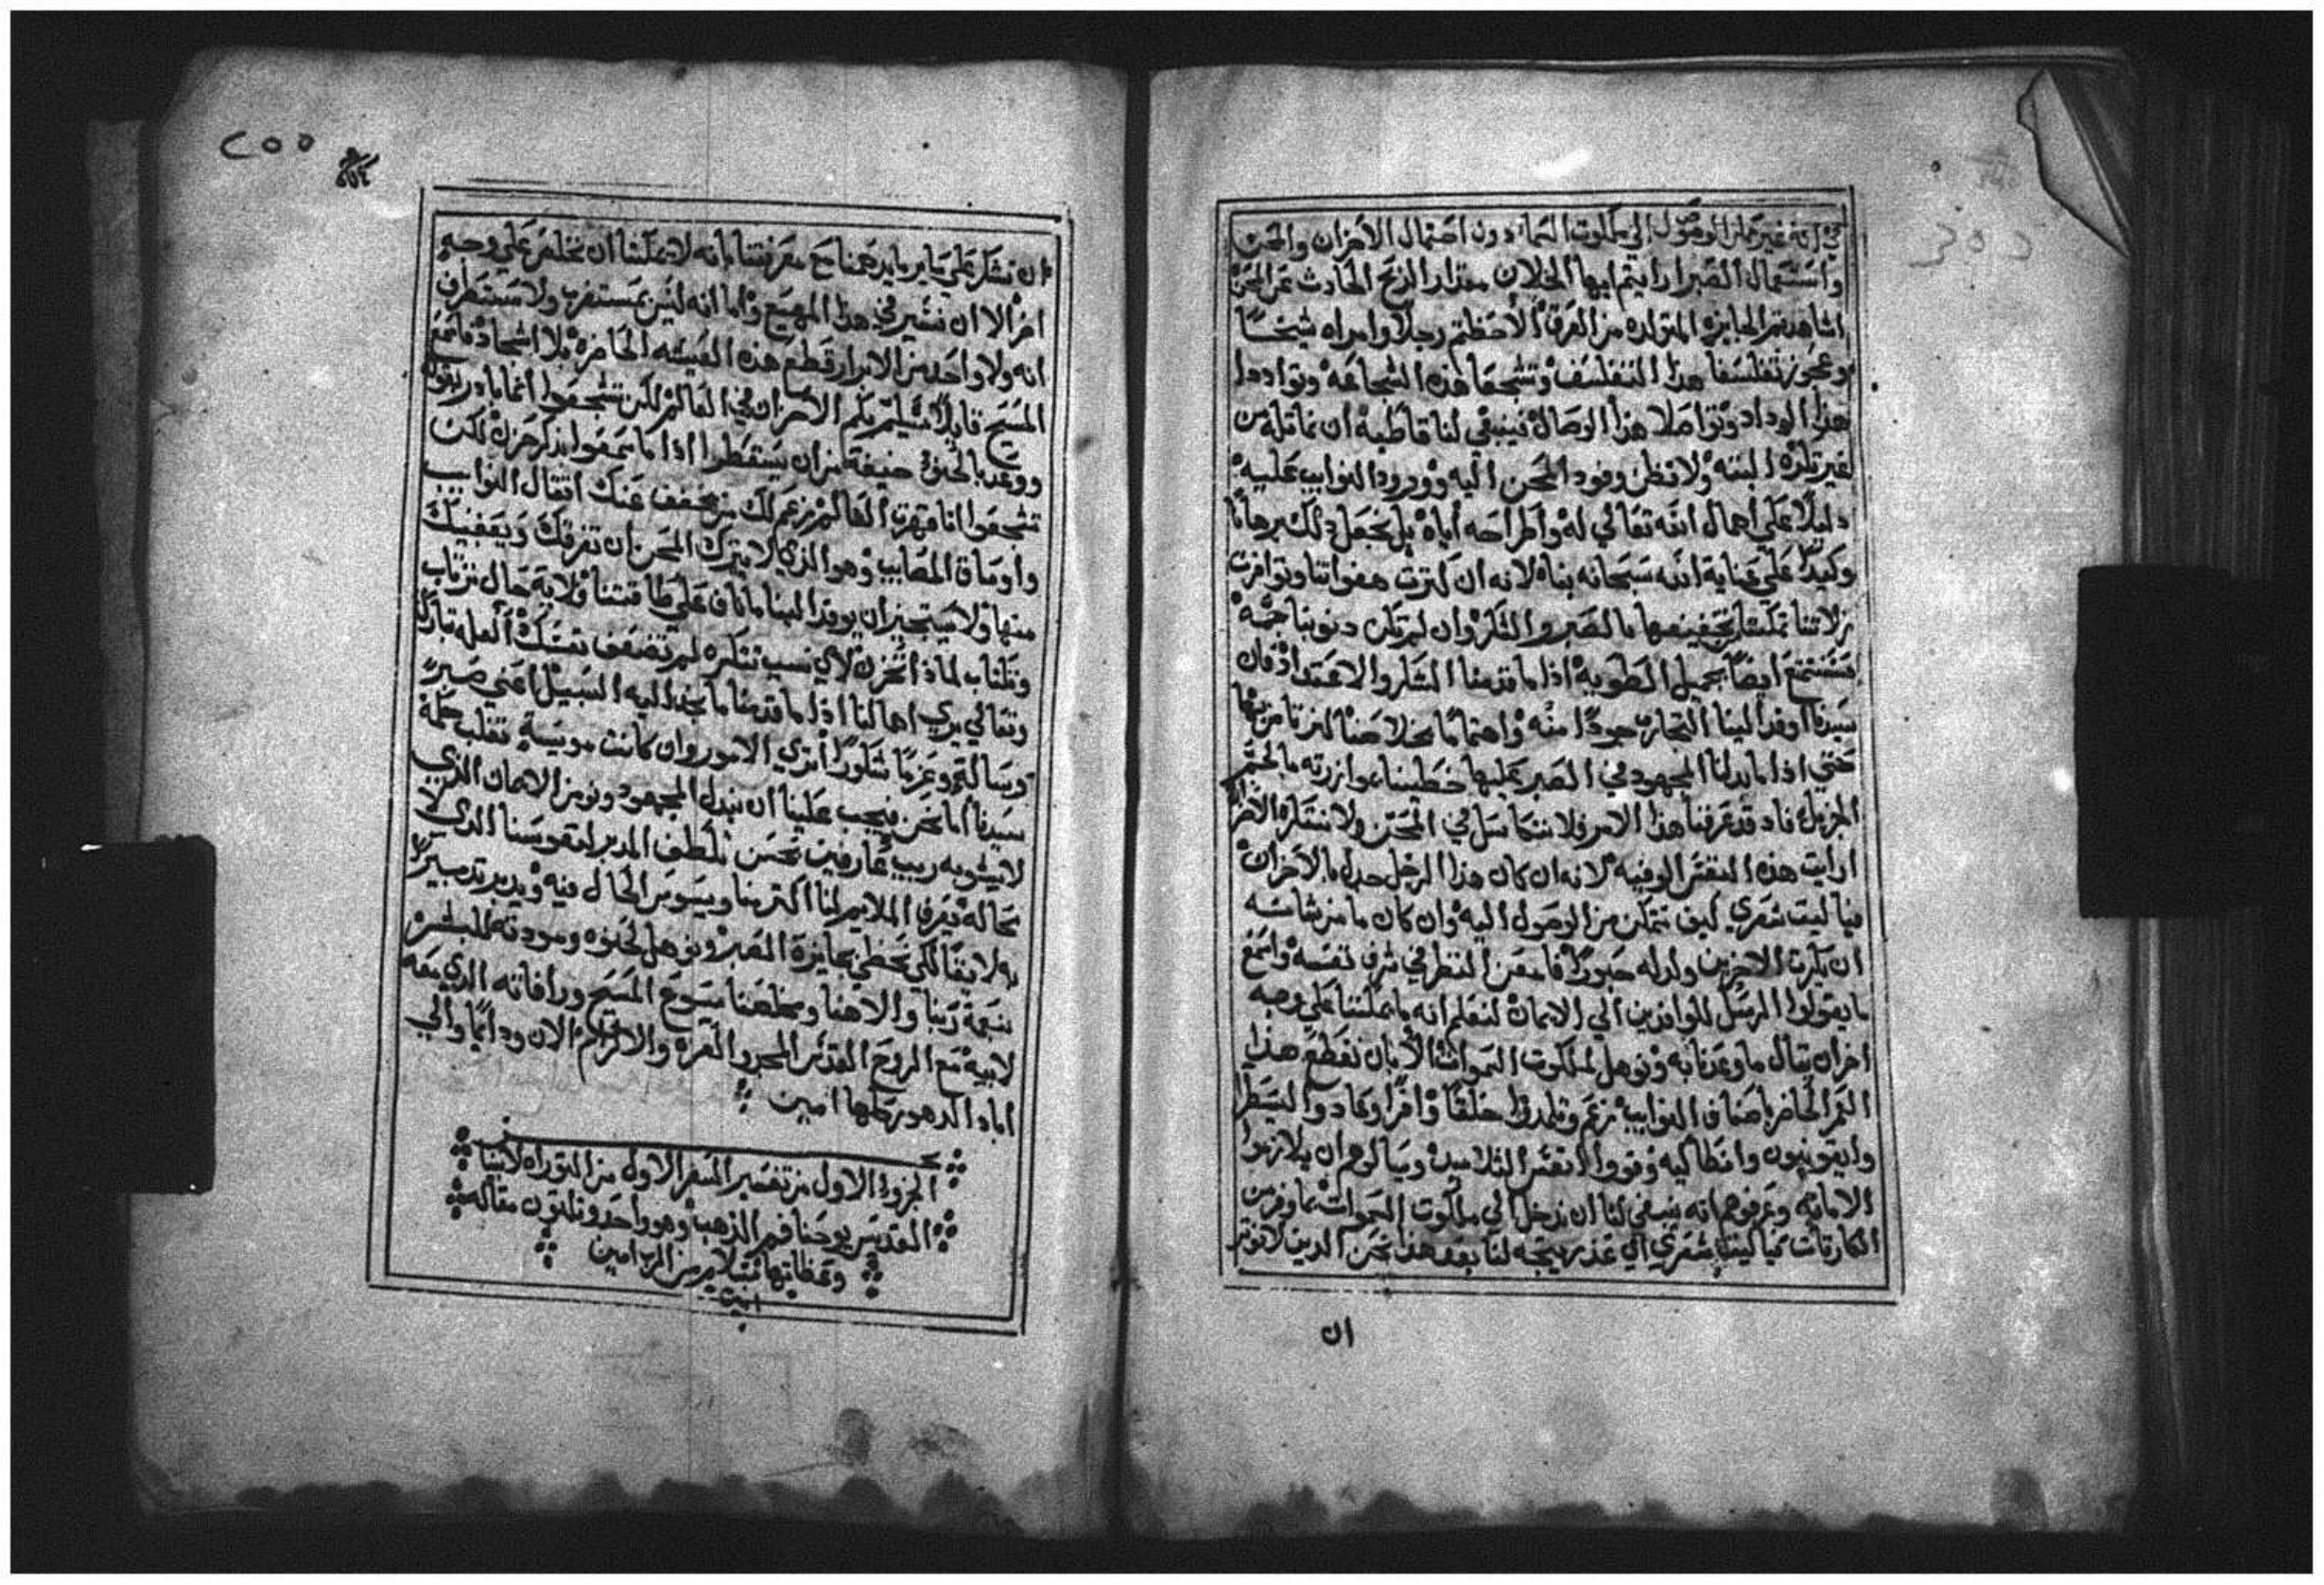 في انه غير ممكن الوصول الي ملكوت السما دون احتمال الاحزان والمحن
واستعمال الصبر ارايتم ايها الخلان مقدار الربح الحادث عن المحن
اشاهدتم الجايزه المتولده من الفرق الاحظتم رجلا وامراه شيخا
وعجوز تفلسفا هذا التفلسف وتشجعا هذه الشجاعه وتواددا
هذا الوداد وتواصلا هذا الوصال فينبغي لنا قاطبة ان نماثله من
غير تلوه البته ولا نظن وفود المحن اليه وورود النوايب عليه
دليلا علي اهمال الله تعالي له واطراحه اياه بل نجعل ذلك برهانا
وكيدا علي عناية الله سبحانه بناه لانه ان كترت هفواتنا وتوافرت
زلاتنا تمكننا تخفيفها بالصبر والشكر وان لم تكن دنوبنا جمه
فنستمتع ايضا بجميل الطويه اذا ما قدمنا الشكر والاعتداد فان
سيدنا اوفد الينا التجارب جودا منه واهتماما بخلاصنا لنرتاض بها
حتي اذا ما بدلنا المجهود في الصبر عليها حظينا بموازرته بالحتم
المزيل فاد قد عرفنا هذا الامر فلا نتكاسل في المحن ولا نستكره الاحزان
ارايت هذه النفس الوفيه لانه ان كان هذا الرجل جدل بالاحزان
فيا ليت شعري كيف نتمكن من الوصول اليه وان كان ما من شانه
ان يكرت الاخرين ولد له حبورا فامعن النظر في شرف نفسه واسمع
ما يقولوا الرسل للوافدين الي الايمان لتعلم انه ما يمكننا علي وجه
اخر ان ننال ما وعدنا به ونوهل لملكوت السموات الا بان نقطع هذا
العمر الحاضر باصناف النوايب زعم وتلمدوا خلقا وافرا وعادوا ليسطرا
وايقونيون وانطاكيه وقووا انفس التلاميد وسالوهم ان يلازموا
الامانه وعرفوهم انه ينبغي لنا ان ندخل الي ملكوت السموات بما وفر من
الكارتات فيا ليت شعري اي عذر يتجه لنا بعد هذا نحن الدين لا نوتر
ان
٢٥٥
ان نشكر علي ساير ما يدهمنا مع معرفتنا بانه لا يمكننا ان نخلص علي وجه
اخر الا ان نسير في هذا المهيع واما انه ليس بمستغرب ولا مستطرف
انه ولا واحد من الابرار قطع هذه العيشه الحاضره بلا اشجاد فاسمع
المسيح قايلا سيلم بكم الاحزان في العالم لكن تشجعوا انما بادر بقوله
ووعد بالحنو خيفة من ان يسقطوا اذا ما سمعوا بذكر حزن لكن
تشجعوا انا قهرت العالم زعم لك من يخفف عنك اتقال النوايب
واوصاف المصايب وهو الذي لا يترك المحن ان تغرقك ويعفيك
منها ولا يستجيز ان يوفد الينا ما ناف علي طاقتنا فلاية حال نرتاب
ونكتاب لماذا نحزن لاي سبب نتكره لم تضعف نفسك العله تبارك
وتعالي يري اهمالنا اذا ما قدمنا ما نجد اليه السبيل اعني صبرا
وبسالة وعزما شكورا اتري الامور وان كانت مويسة تغلب حكمة
سيدنا اما نحن فيجب علينا ان نبدل المجهود ونومن الايمان الذي
لا يشوبه ريب عارفين نحسن تلطف المدبر لنفوسنا الذي لا
محاله يعرف الملايم لنا اكتر منا ويسوس الحال فيه ويدبر تدبيرا
به لايقا لكي نحظي بجايزة الصبر ونوهل لحنوه ومودته للبشر
بنعمة ربنا والاهنا ومخلصنا يسوع المسيح ورافاته الدي معه
لابيه مع الروح القدس المجد والعزه والاكرام الان ودايما والي
اباد الدهور كلها امين
الجزو الاول من تفسير السفر الاول من التوراه لابينا
القديس يوحنا فم الذهب وهو واحد وتلتون مقاله
وعظاتها بسلام من الرب امين
امين